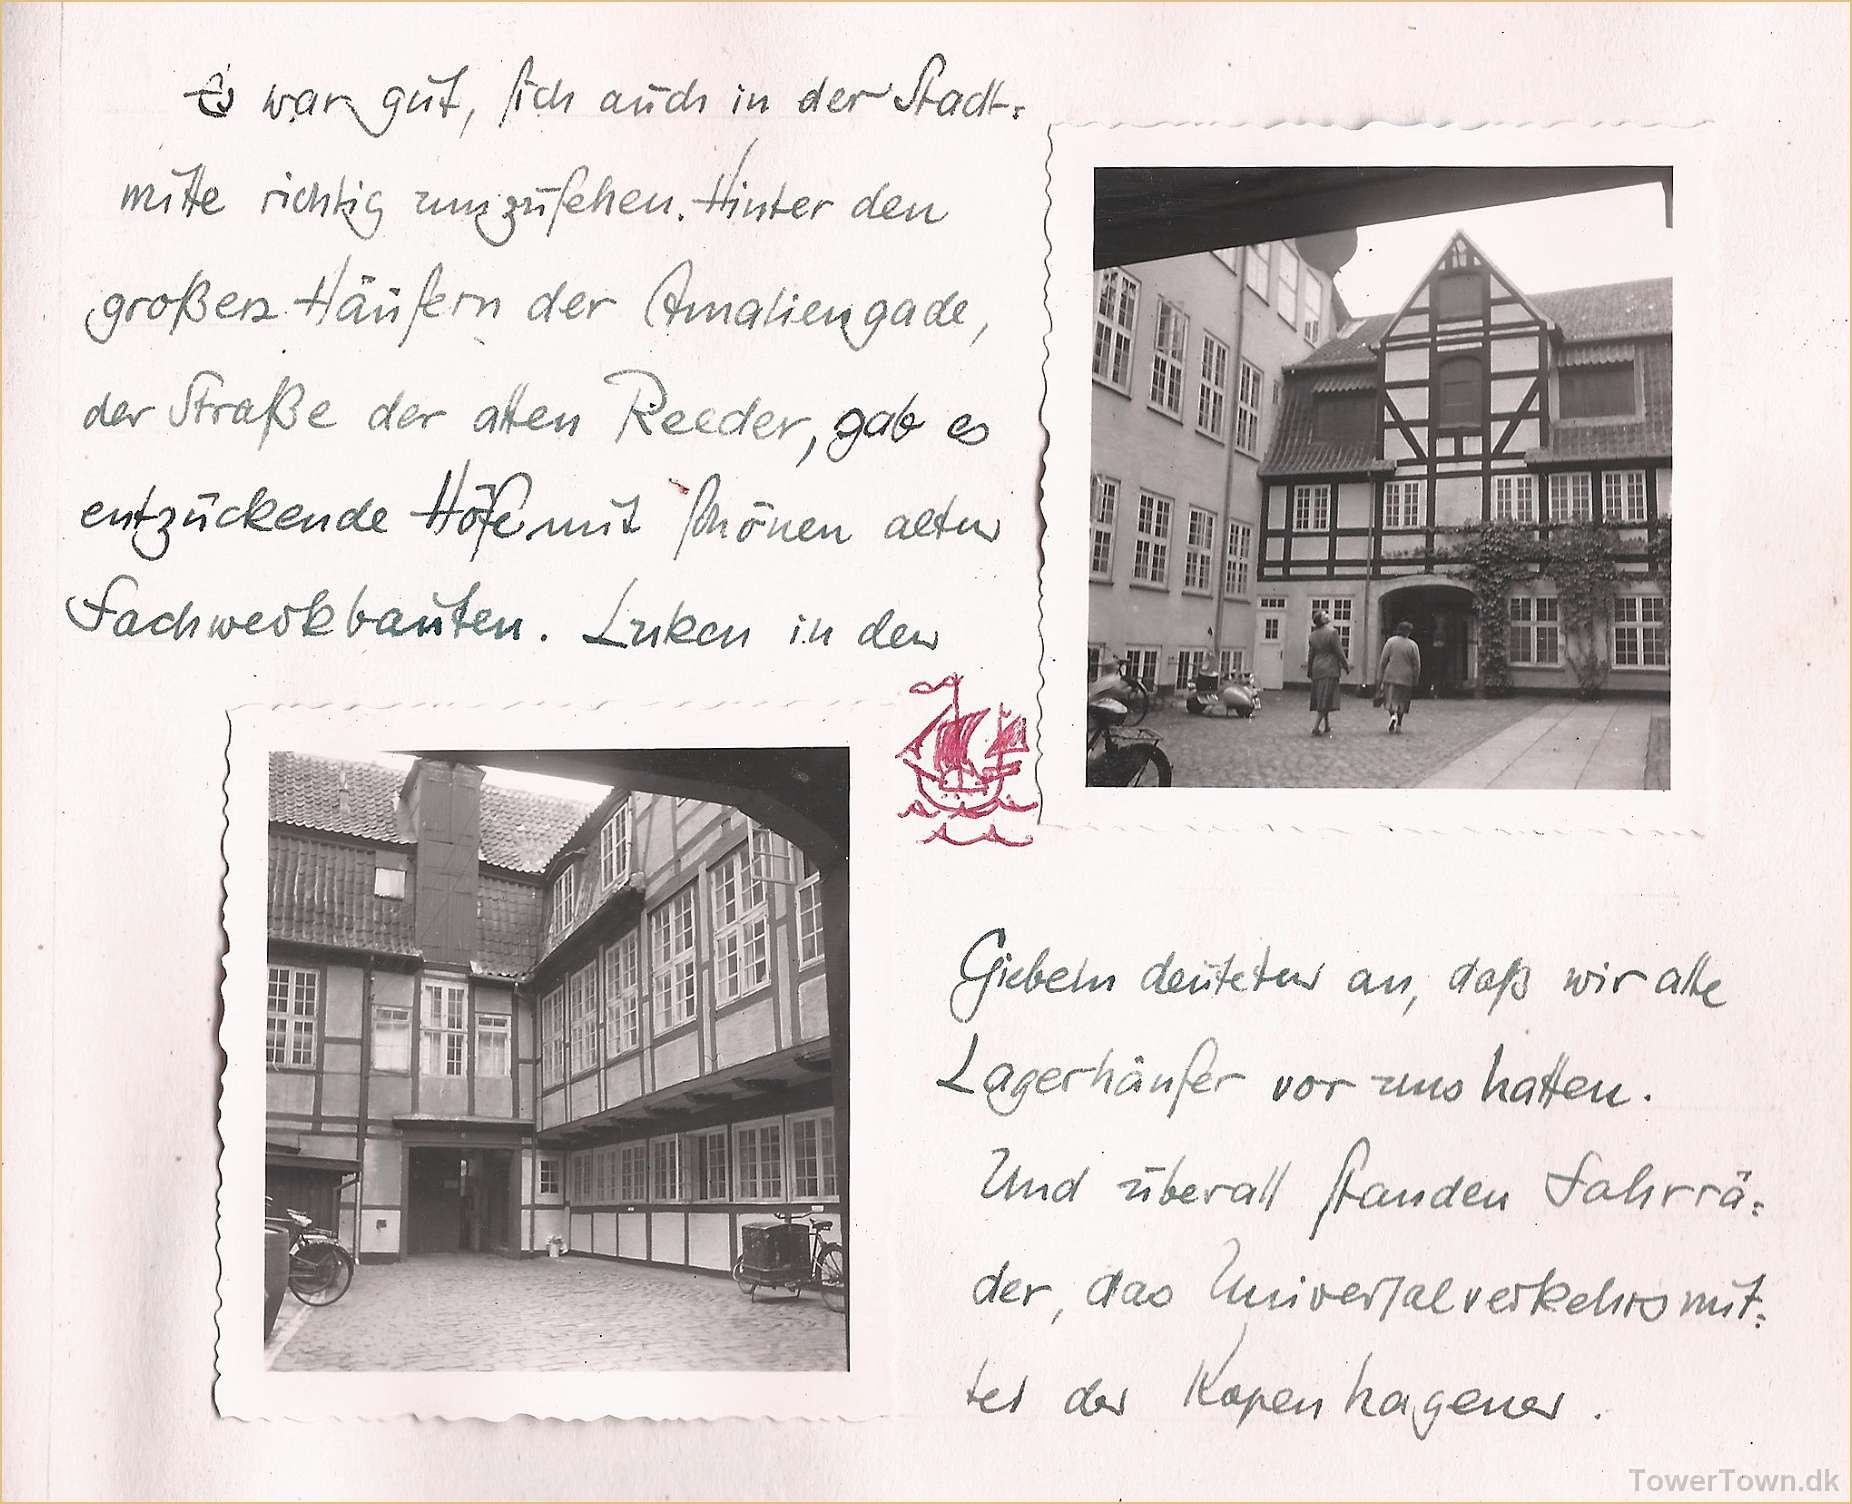 Es war gut, sich auch in der Stadt-
mitte richtig umzusehen. Hinter den
großen Häusern der Amaliengade,
der Straße der alten Reeder, gab es
entzückende Höfe mit schönen alten
Fachwerkbauten. Luken in den
Giebeln deuteten an, daß wir alte
Lagerhäuser vor uns hatten.
Und überall standen Fahrrä-
der, das Universalverkehrsmit-
tel der Kopenhagener.
TowerTown.dk